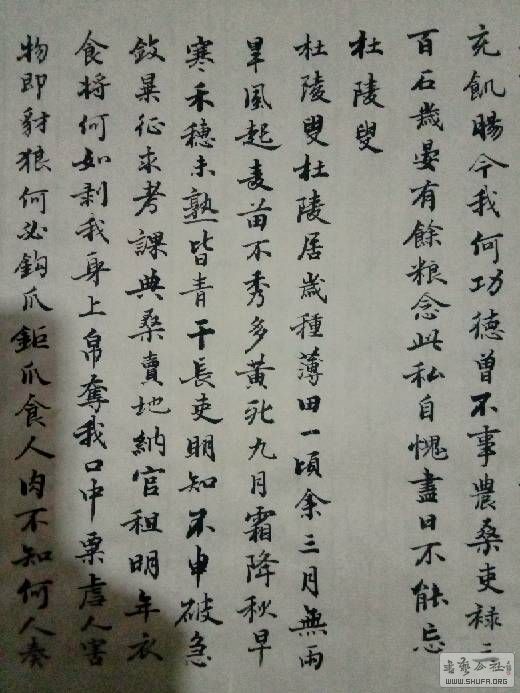 充飢腸今我何功德曾不事農桑吏禄三
百石歲晏有餘粮念此私自愧盡日不能忘
杜陵叟
杜陵叟杜陵居歲種薄田一頃余三月無雨
旱風起麦苗不秀多黄死九月霜降秋早
寒禾穗未熟皆青干長吏明知不申破急
斂暴征求考課典桑賣地納官租明年衣
食将何如剥我身上帛奪我口中粟虐人害
物即豺狼何必鈎爪鉅爪食人肉不知何人奏
WWW.SHUFA.ORG